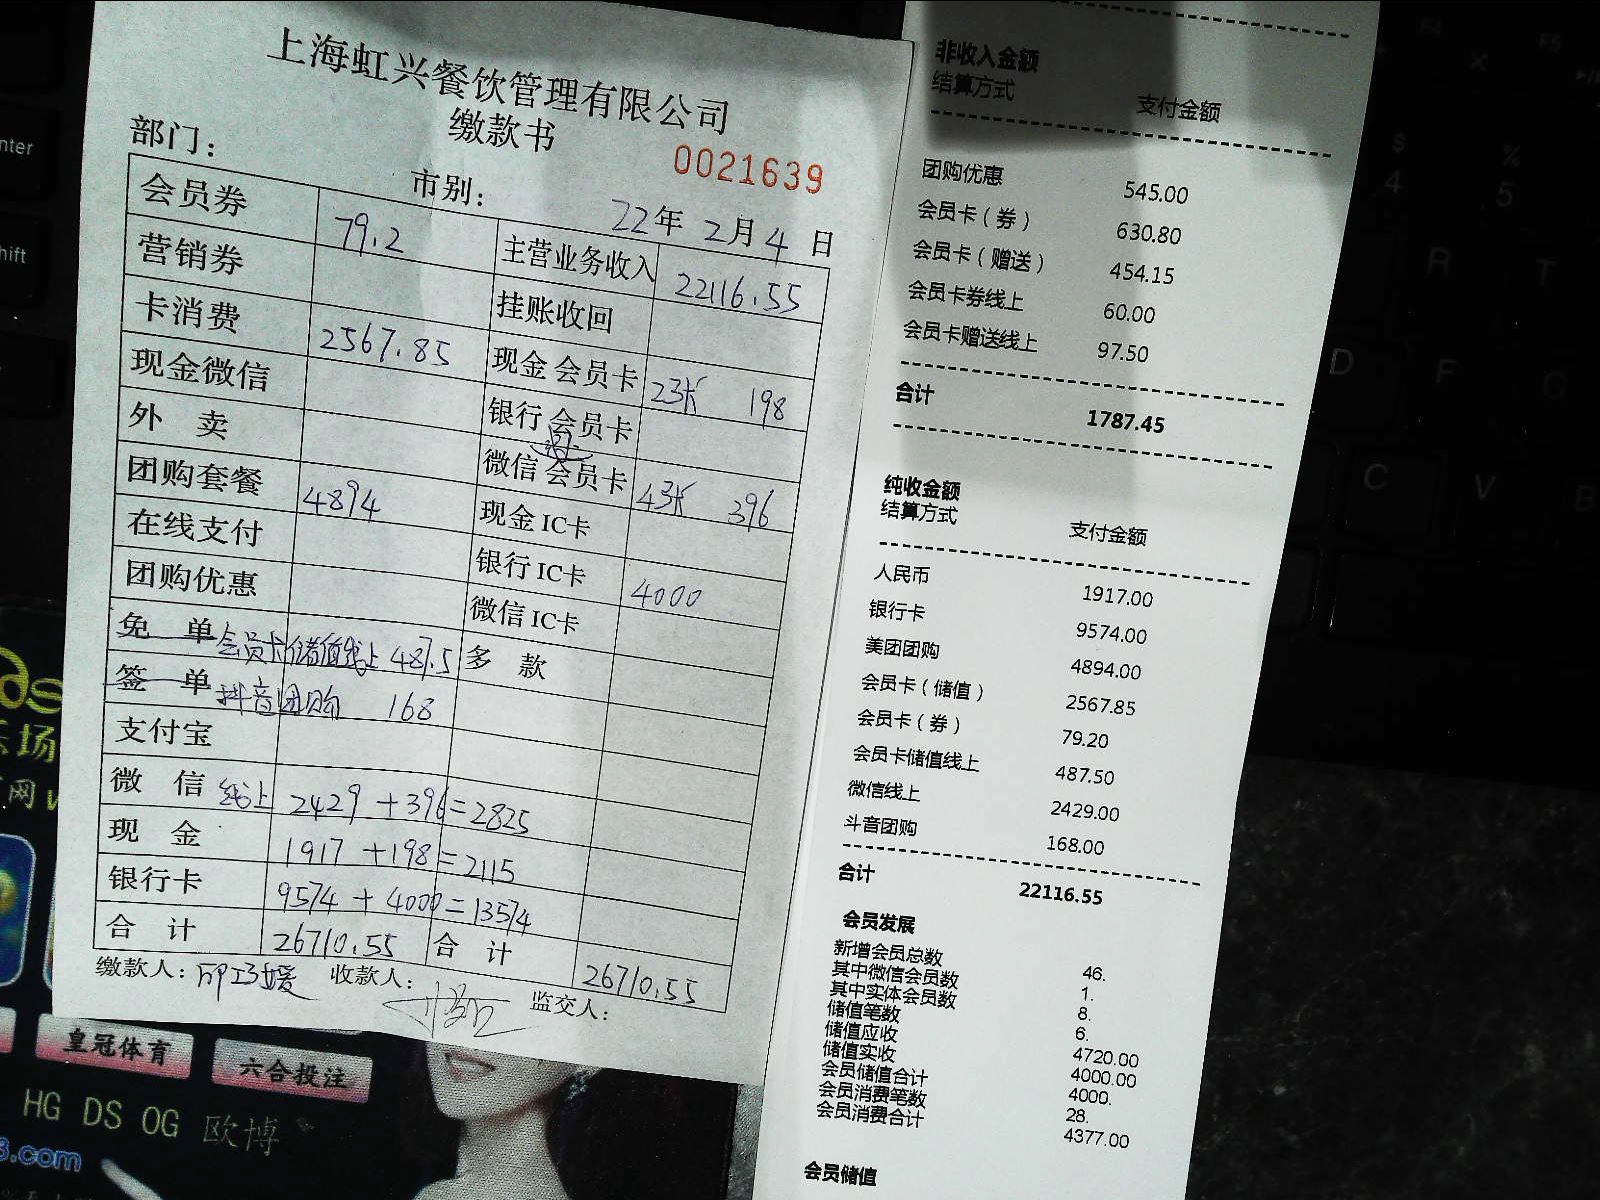 上海虹兴餐饮管理有限公司
缴款书
部门：
市别：
0021639
22年 2月 4日
会员券 79.2 主营业务收入 22116.55
营销券 挂账收回
卡消费 2567.85 现金会员卡 2张 198
现金微信 银行会员卡
外 卖 微信会员卡 4张 396
团购套餐 4894 现金IC卡
在线支付 银行IC卡 4000
团购优惠 微信IC卡
免 单 会员卡储值线上 487.5 多 款
签 单 抖音团购 168
支付宝
微 信 线上 2429 +396=2825
现 金 1917 +198=2115
银行卡 9574 + 4000=13574
合 计 26710.55 合 计 26710.55
缴款人： 收款人： 监交人：
非收入金额
结算方式 支付金额
团购优惠 545.00
会员卡（券） 630.80
会员卡（赠送） 454.15
会员卡券线上 60.00
会员卡赠送线上 97.50
合计 1787.45
纯收金额
结算方式 支付金额
人民币 1917.00
银行卡 9574.00
美团团购 4894.00
会员卡（储值） 2567.85
会员卡（券） 79.20
会员卡储值线上 487.50
微信线上 2429.00
斗音团购 168.00
合计 22116.55
会员发展
新增会员总数 46.
其中微信会员数 1.
其中实体会员数 8.
储值笔数 6.
储值应收 4720.00
储值实收 4000.00
会员储值合计 4000.
会员消费笔数 28.
会员消费合计 4377.00
会员储值
皇冠体育
六合投注
HG DS OG 欧博
.com
nter
hift
$
4
%
5
R
T
D
F
G
C
V
B
F4
F5